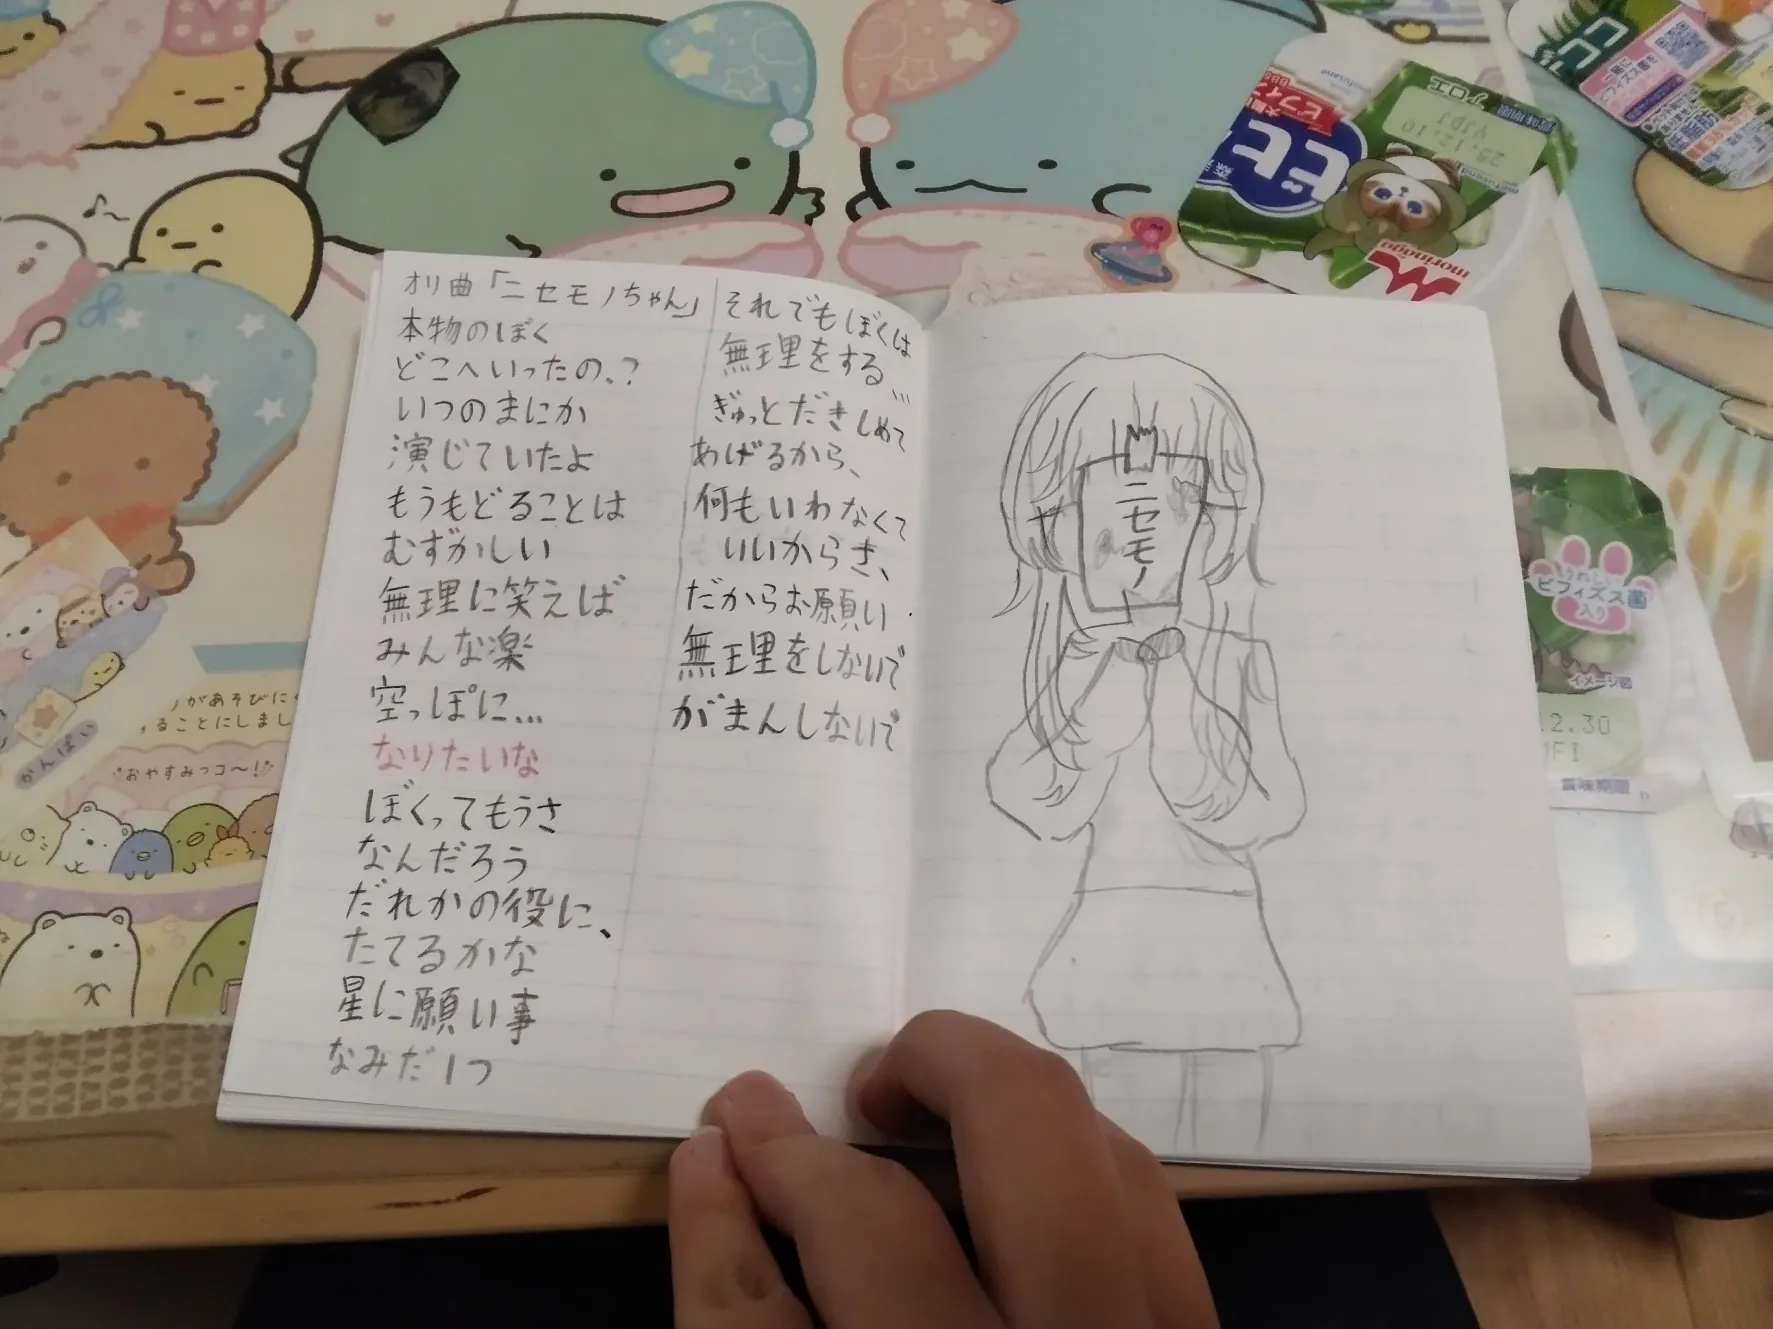 オリ曲「ニセモノちゃん」
本物のぼく
どこへいったの、?
いつのまにか
演じていたよ
もうもどることは
むずかしい
無理に笑えば
みんな楽
空っぽに...
なりたいな
ぼくってもうさ
なんだろう
だれかの役に、
たてるかな
星に願い事
なみだ1つ
それでもぼくは
無理をする...
ぎゅっとだきしめて
あげるから、
何もいわなくて
いいからさ、
だからお願い
無理をしないで
がまんしないで
ニセモノ
ビヒ
morinaga
mofusand
アロエ
賞味期限
25.12.10
VJDJ
ビフィズス菌
入り
イメージ図
12.30
賞味期限
があそびに
ることにしまし
おやすみっコ〜!
かんぱい